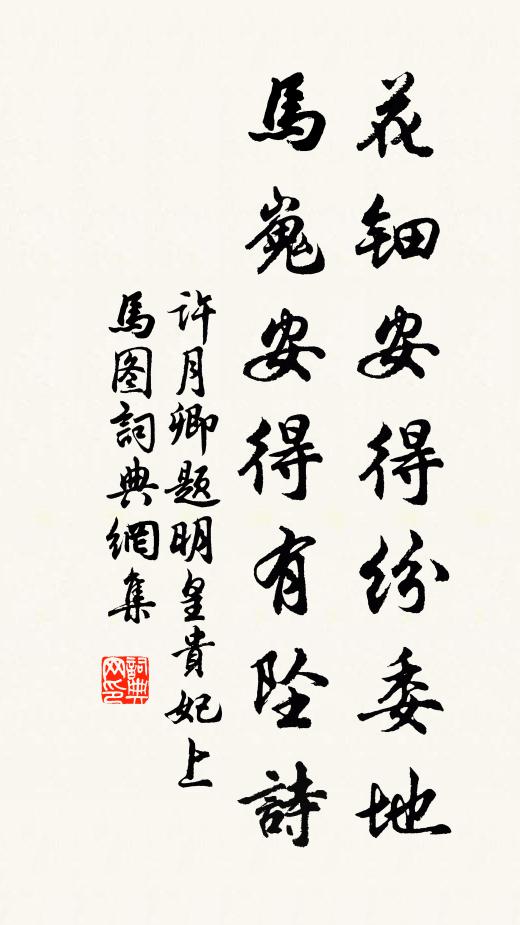 花钿安得纷委地
馬嵬安得有坠詩
许月卿题明皇貴妃上
馬图詞典網集
詞典
网印